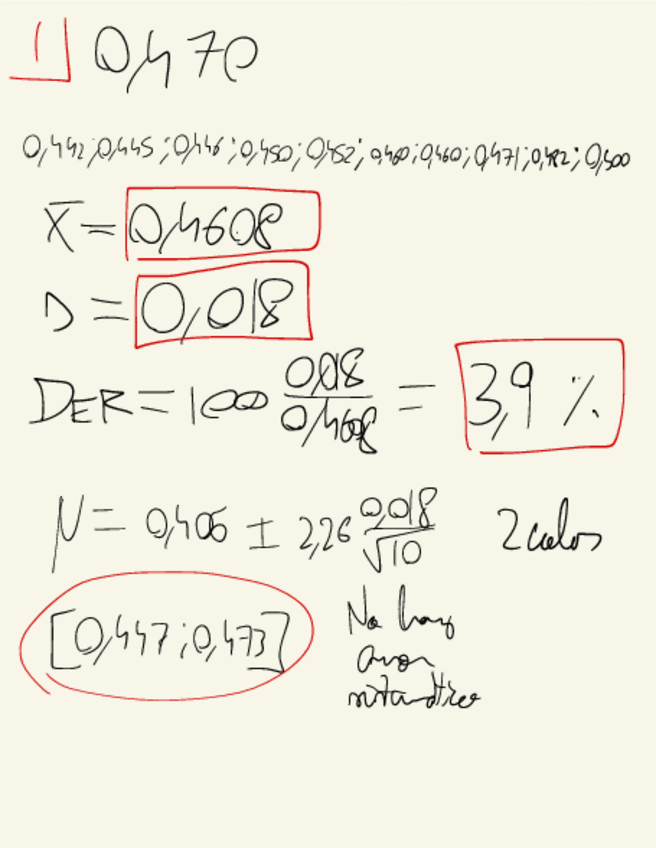 1 0,470
0,442; 0,445; 0,446; 0,450; 0,452; 0,460; 0,460; 0,471; 0,482; 0,500
X̄ = 0,4608
s = 0,018
DER = 100 0,018/0,4608 = 3,9 %
μ = 0,406 ± 2,26 0,018/√10 2 colas
[0,447; 0,473] No hay
error
sistemático